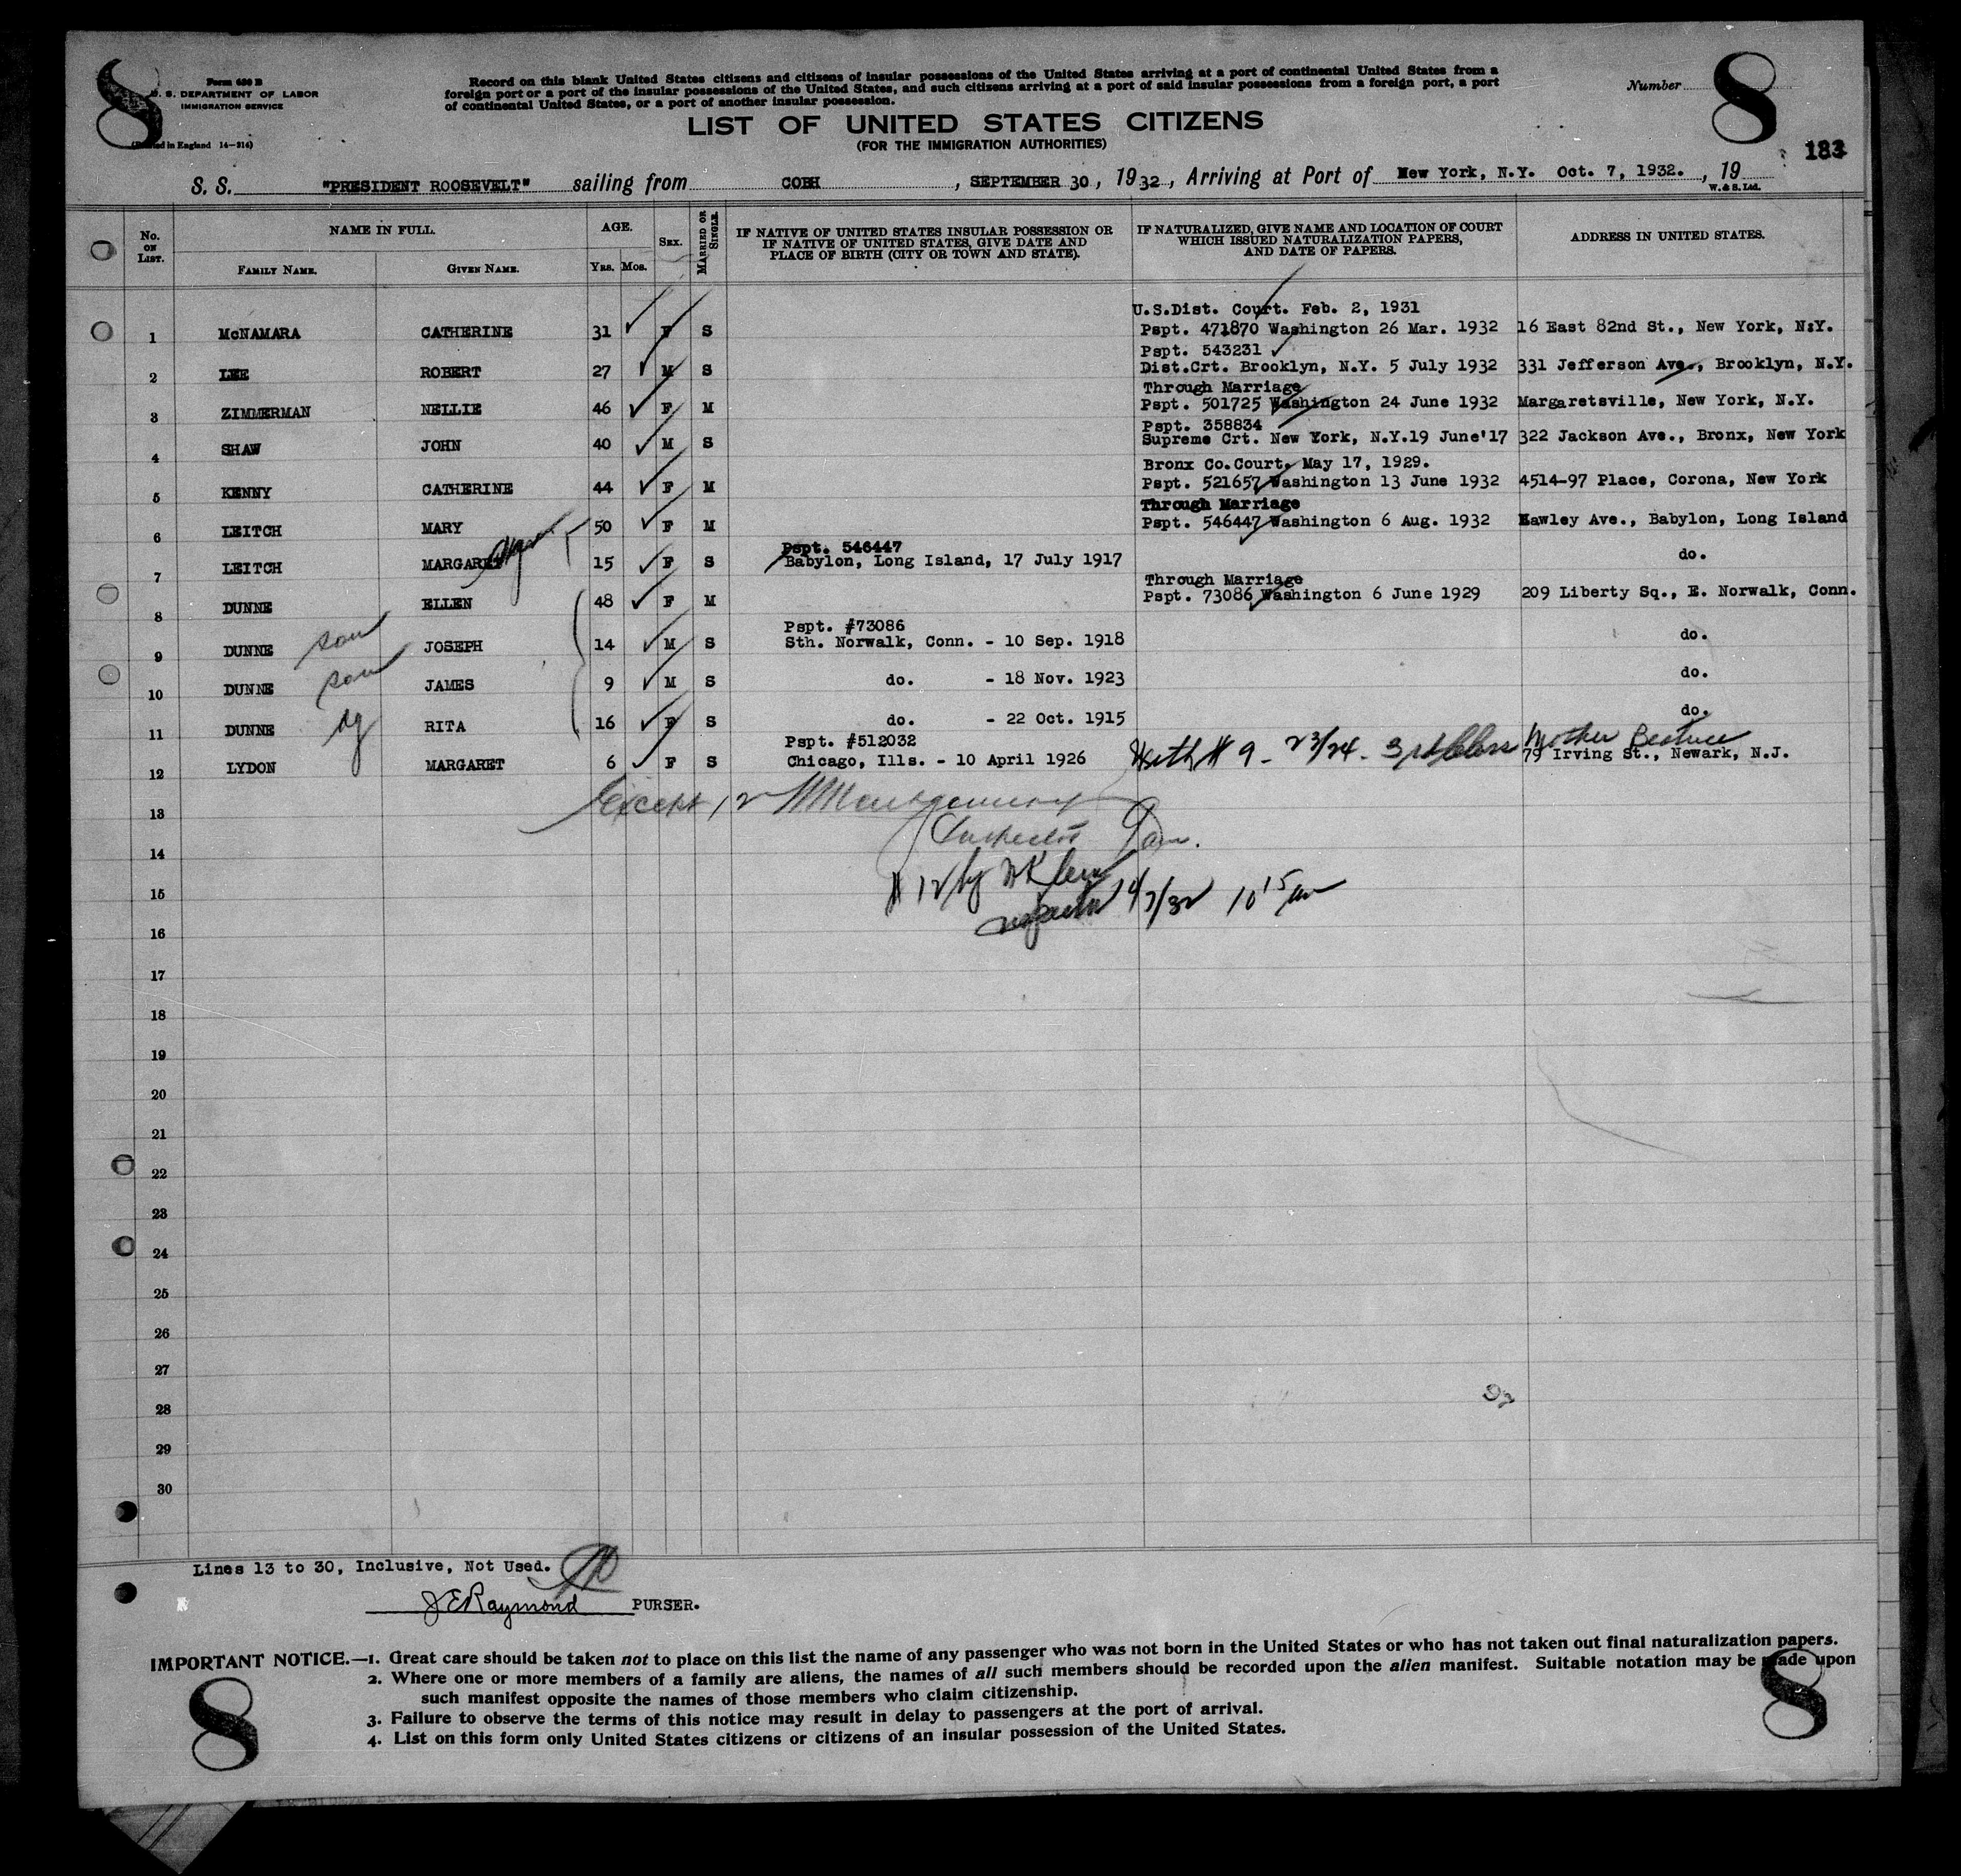 8
Form 630 B
U. S. DEPARTMENT OF LABOR
IMMIGRATION SERVICE
(Printed in England 14-314)
Record on this blank United States citizens and citizens of insular possessions of the United States arriving at a port of continental United States from a
foreign port or a port of the insular possessions of the United States, and such citizens arriving at a port of said insular possessions from a foreign port, a port
of continental United States, or a port of another insular possession.
LIST OF UNITED STATES CITIZENS
(FOR THE IMMIGRATION AUTHORITIES)
Number 8
183
S. S. "PRESIDENT ROOSEVELT" sailing from COBH, SEPTEMBER 30, 1932, Arriving at Port of New York, N.Y. Oct. 7, 1932., 19
W. & S. Ltd.
No. ON LIST. NAME IN FULL. AGE. SEX. MARRIED OR SINGLE. IF NATIVE OF UNITED STATES INSULAR POSSESSION OR IF NATIVE OF UNITED STATES, GIVE DATE AND PLACE OF BIRTH (CITY OR TOWN AND STATE). IF NATURALIZED, GIVE NAME AND LOCATION OF COURT WHICH ISSUED NATURALIZATION PAPERS, AND DATE OF PAPERS. ADDRESS IN UNITED STATES.
FAMILY NAME. GIVEN NAME. YRS. MOS.
U.S.Dist. Court. Feb. 2, 1931
1 McNAMARA CATHERINE 31 F S Pspt. 471870 Washington 26 Mar. 1932 16 East 82nd St., New York, N.Y.
Pspt. 543231
2 LEE ROBERT 27 M S Dist.Crt. Brooklyn, N.Y. 5 July 1932 331 Jefferson Ave., Brooklyn, N.Y.
Through Marriage
3 ZIMMERMAN NELLIE 46 F M Pspt. 501725 Washington 24 June 1932 Margaretsville, New York, N.Y.
Pspt. 358834
4 SHAW JOHN 40 M S Supreme Crt. New York, N.Y.19 June'17 322 Jackson Ave., Bronx, New York
Bronx Co.Court. May 17, 1929.
5 KENNY CATHERINE 44 F M Pspt. 521657 Washington 13 June 1932 4514-97 Place, Corona, New York
Through Marriage
6 LEITCH MARY 50 F M Pspt. 546447 Washington 6 Aug. 1932 Hawley Ave., Babylon, Long Island
Pspt. 546447
7 LEITCH MARGARET 15 F S Babylon, Long Island, 17 July 1917 do.
Through Marriage
8 DUNNE ELLEN 48 F M Pspt. 73086 Washington 6 June 1929 209 Liberty Sq., E. Norwalk, Conn.
Pspt. #73086
9 DUNNE son JOSEPH 14 M S Sth. Norwalk, Conn. - 10 Sep. 1918 do.
10 DUNNE son JAMES 9 M S do. - 18 Nov. 1923 do.
11 DUNNE dg RITA 16 F S do. - 22 Oct. 1915 do.
Pspt. #512032 With # 9 - 23/24 - 3rd Class Mother Beatrice
12 LYDON MARGARET 6 F S Chicago, Ills. - 10 April 1926 79 Irving St., Newark, N.J.
Except 12 Montgomery
13
Inspector
14
# 12 by
15
10/7/32 10 15 am
Inspector
16
17
18
19
20
21
22
23
24
25
26
27
28
29
30
Lines 13 to 30, Inclusive, Not Used.
J E Raymond PURSER.
IMPORTANT NOTICE.—1. Great care should be taken not to place on this list the name of any passenger who was not born in the United States or who has not taken out final naturalization papers.
2. Where one or more members of a family are aliens, the names of all such members should be recorded upon the alien manifest. Suitable notation may be made upon
such manifest opposite the names of those members who claim citizenship.
3. Failure to observe the terms of this notice may result in delay to passengers at the port of arrival.
4. List on this form only United States citizens or citizens of an insular possession of the United States.
8
8